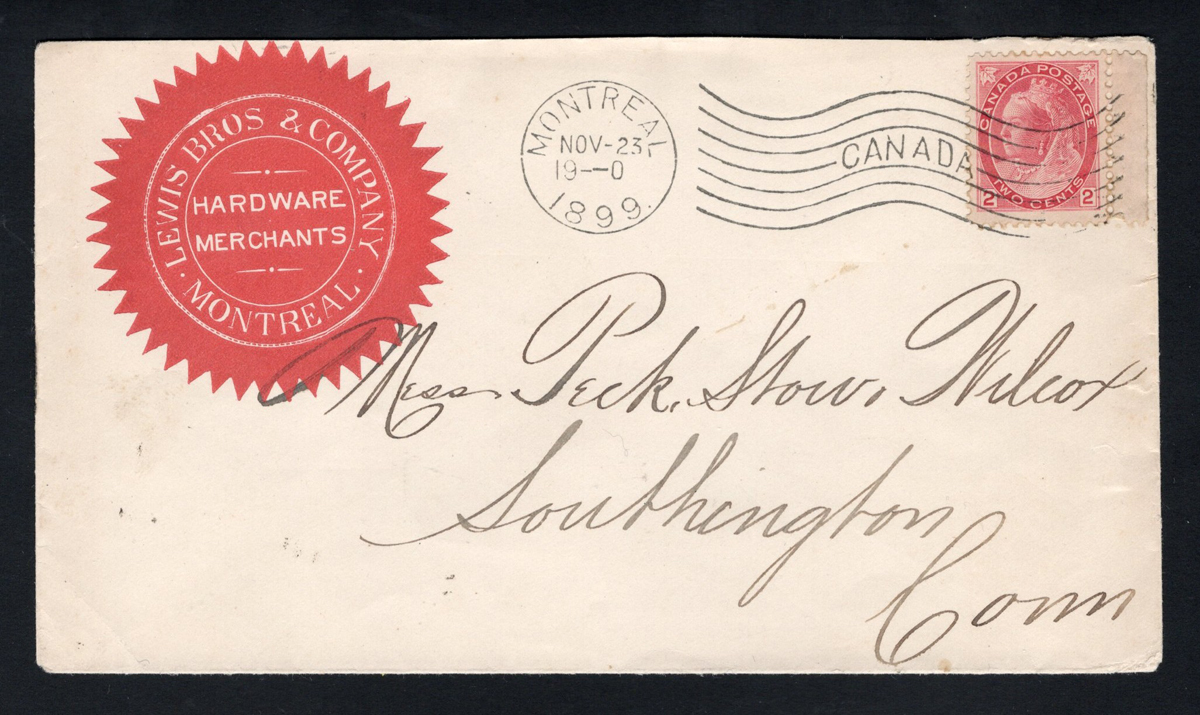 LEWIS BROS & COMPANY
HARDWARE
MERCHANTS
· MONTREAL ·
MONTREAL
NOV-23
19--0
1899.
CANADA
CANADA POSTAGE
2 TWO CENTS 2
Mess Peck, Stow, Wilcox
Southington
Conn